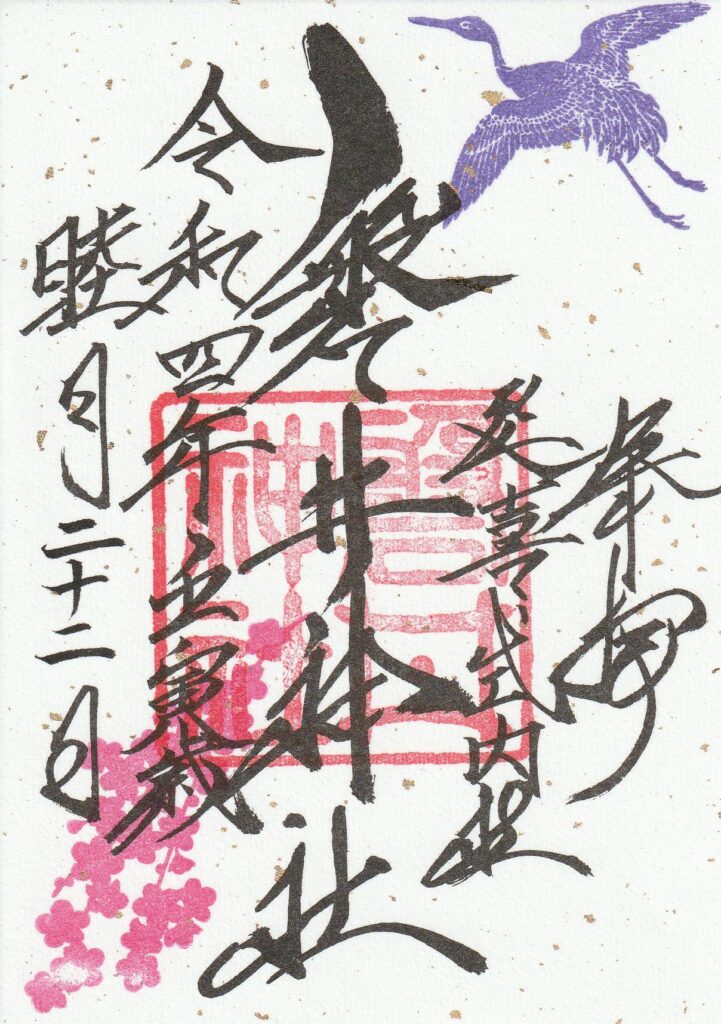 奉拝
延喜式内社
磐井神社
令和四年壬寅歳
睦月二十二日
磐井
神社